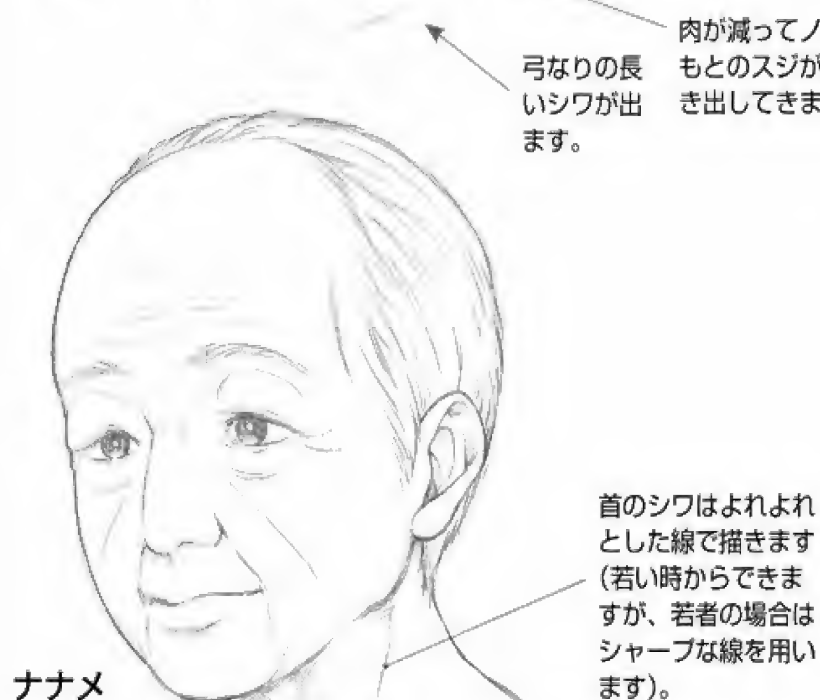 弓なりの長
いシワが出
ます。
肉が減ってノ
もとのスジが
き出してきま
首のシワはよれよれ
とした線で描きます
(若い時からできま
すが、若者の場合は
シャープな線を用い
ます)。
ナナメ